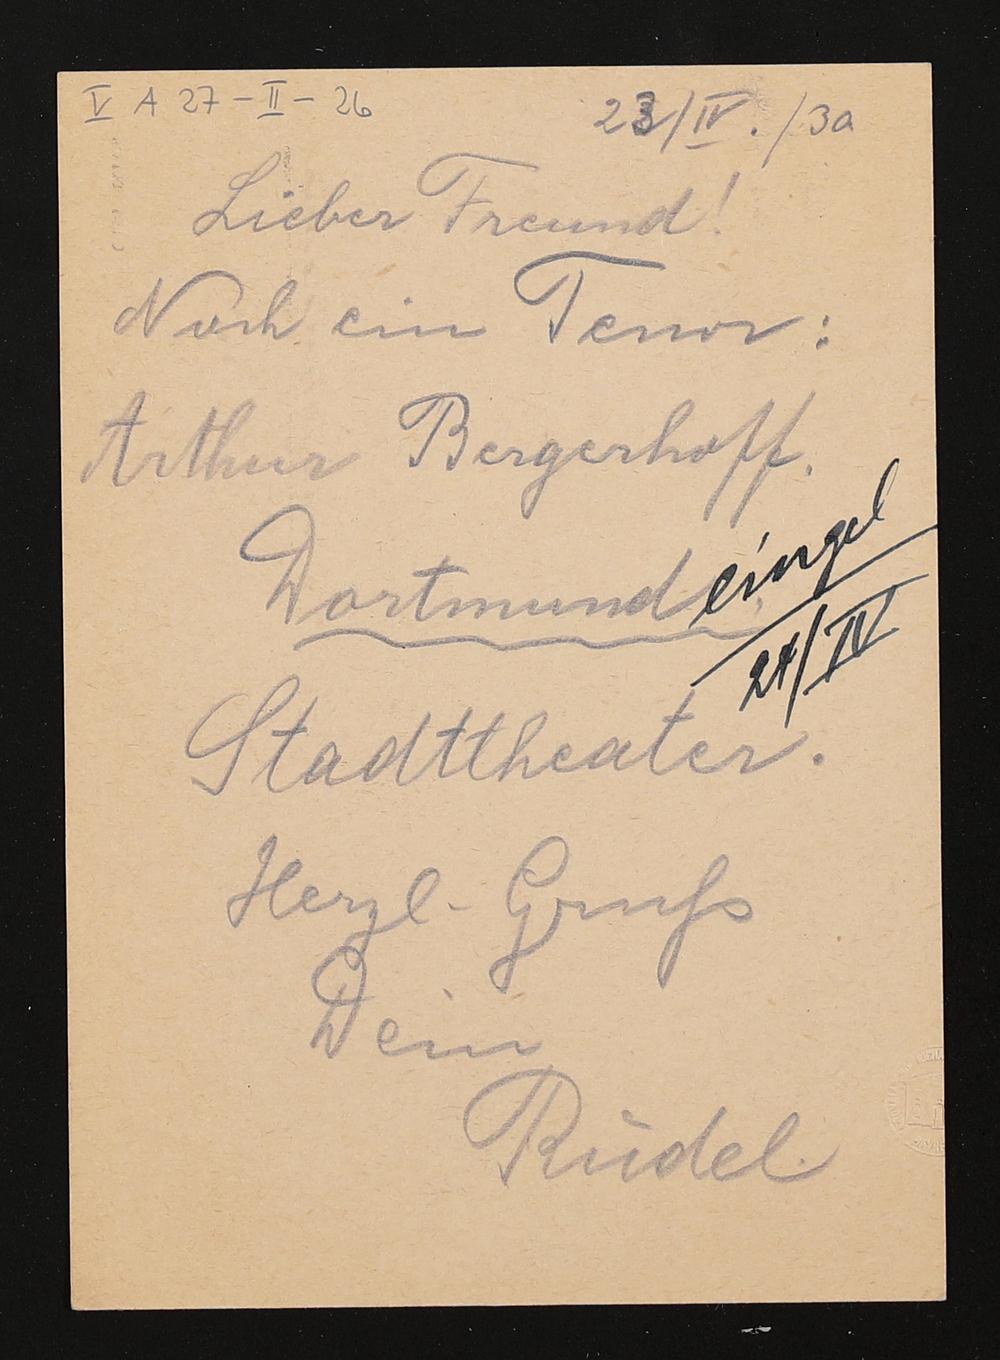 V A 27 - II - 26
23/IV. /30
Lieber Freund!
Noch ein Tenor:
Arthur Bergerhoff.
Dortmund
eingel
24/IV
Stadttheater.
Herzl. Gruß
Dein
Rüdel.